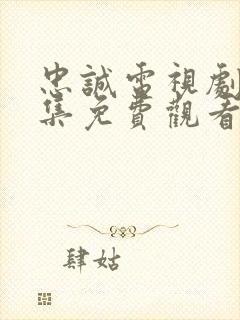 忠誠電視劇
集免費觀看
肆姑